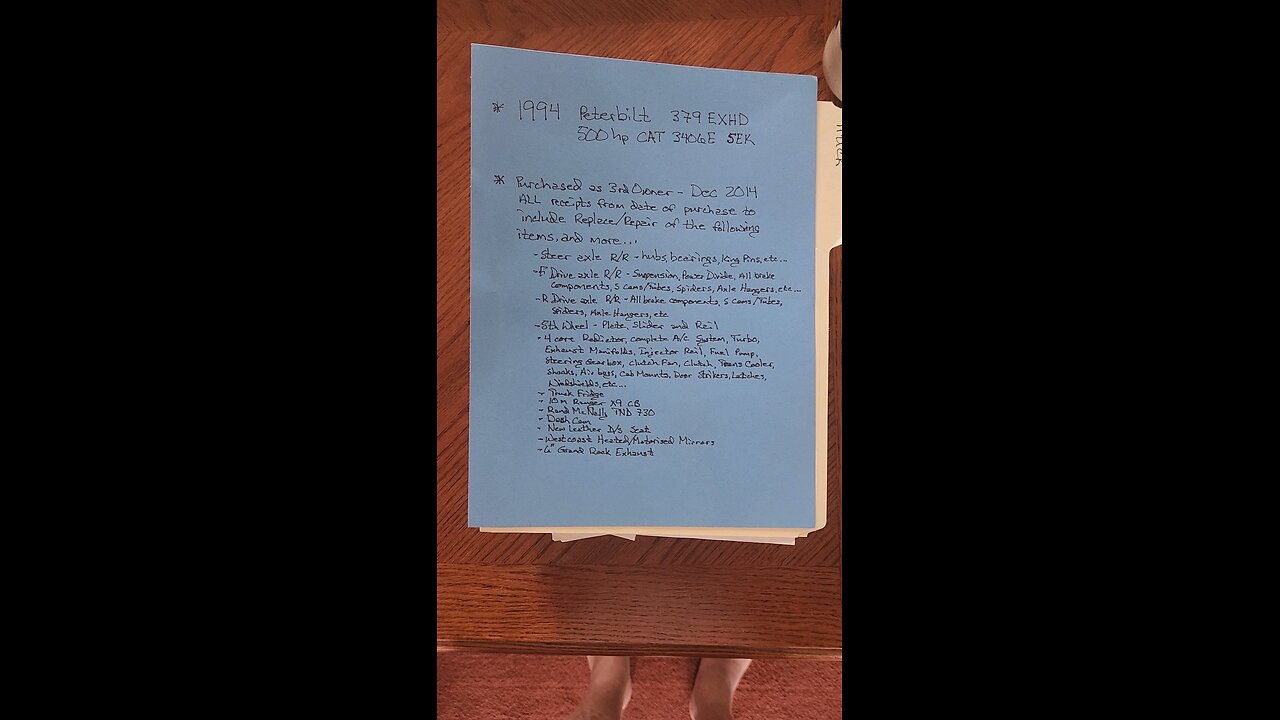 * 1994 Peterbilt 379 EXHD
500hp CAT 3406E 5EK
* Purchased as 3rd Owner - Dec 2014
ALL receipts from date of purchase to
include Replace/Repair of the following
items, and more...
- Steer axle R/R - hubs, bearings, King Pins, etc...
- F Drive axle R/R - Suspension, Power Divide, All brake
components, S cams/Tubes, Spiders, Axle Hangers, etc...
- R Drive axle R/R - All brake components, S cams/Tubes,
Spiders, Axle Hangers, etc
- 5th Wheel - Plate, Slider and Rail
- 4 core Radiator, complete A/C System, Turbo,
Exhaust Manifolds, Injector Rail, Fuel Pump,
Steering Gearbox, Clutch Fan, Clutch, Trans Cooler,
Shocks, Air bags, Cab Mounts, Door Strikers, Latches,
Windshields, etc...
- Truck Fridge
- 10m Ranger X9 CB
- Rand McNally TND 730
- Dash Cam
- New Leather D/S Seat
- Westcoast Heated/Motorised Mirrors
- 6" Grand Rock Exhaust